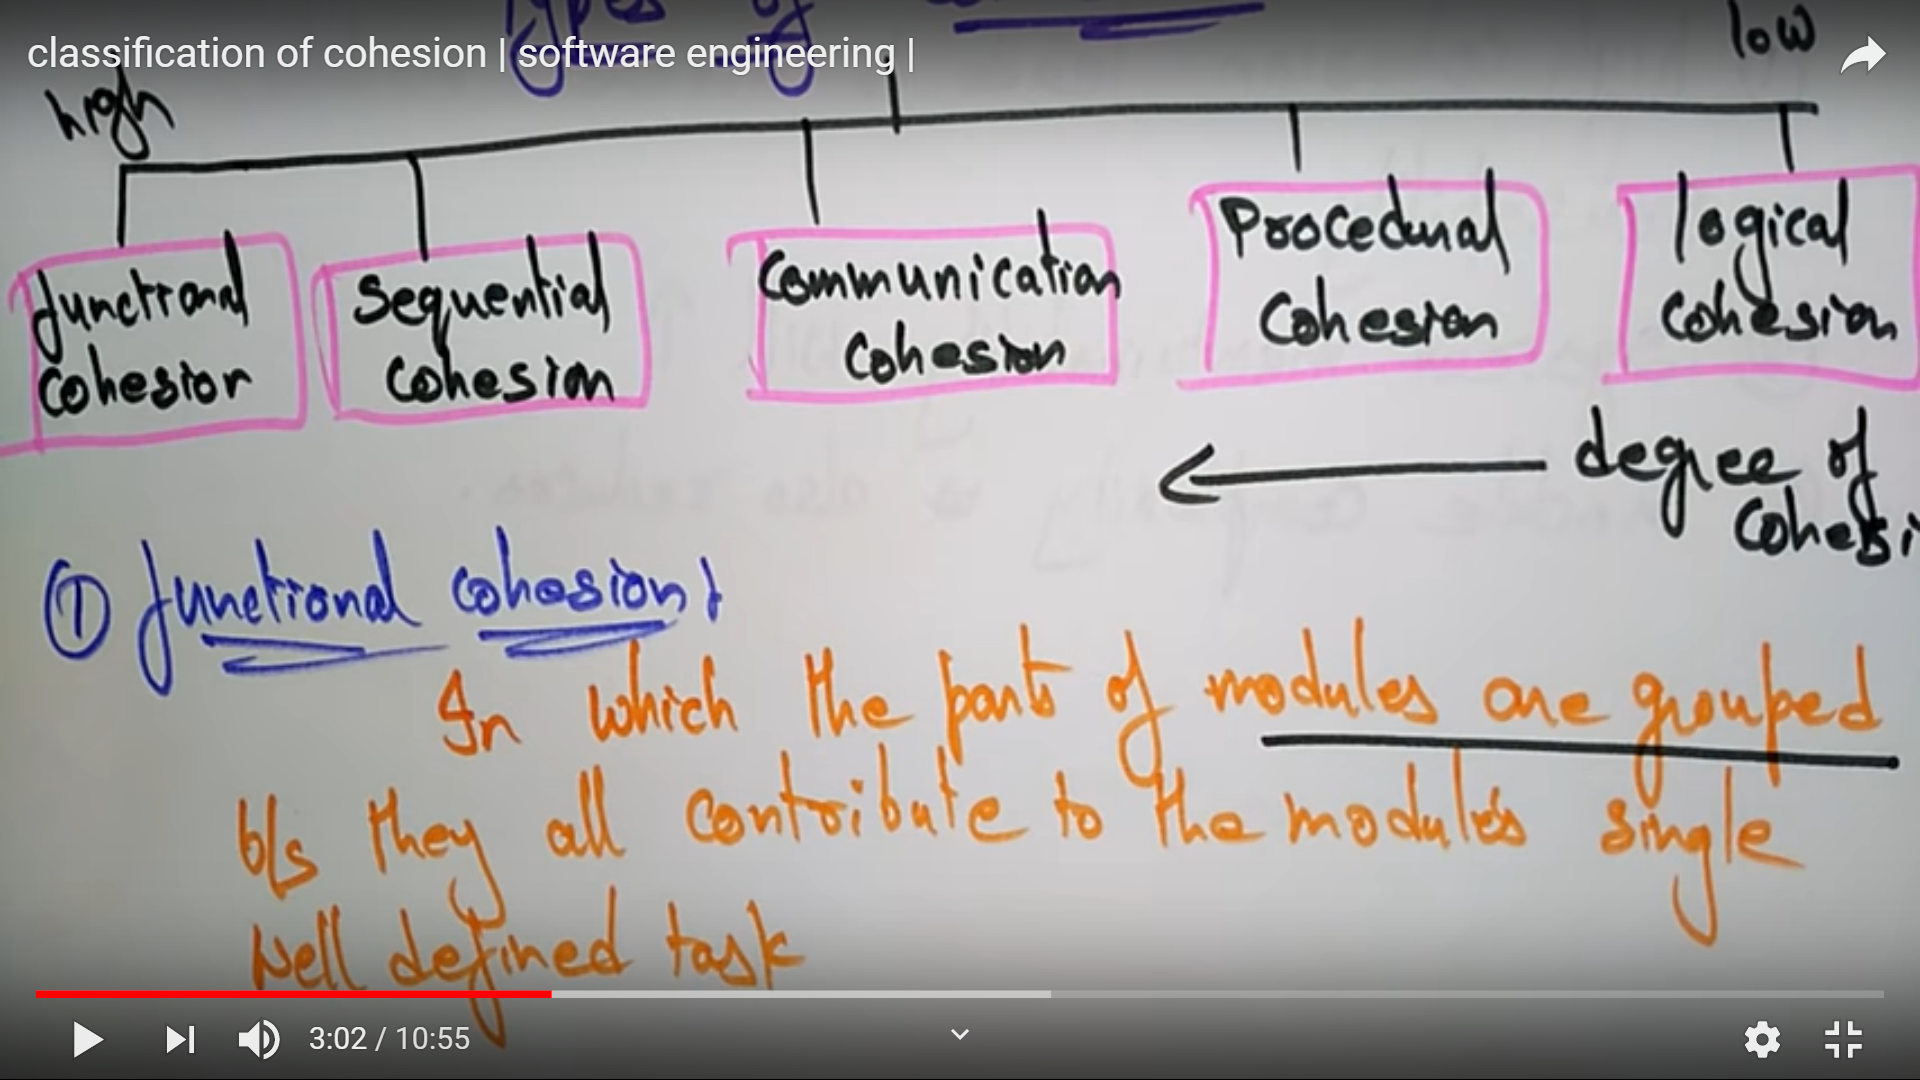 types of
classification of cohesion | software engineering |
high
low
functional
cohesion
Sequential
cohesion
Communication
cohesion
Procedural
cohesion
logical
cohesion
degree of
cohesi
① functional cohesion:
In which the parts of modules are grouped
b/s they all contribute to the module's single
well defined task
3:02 / 10:55